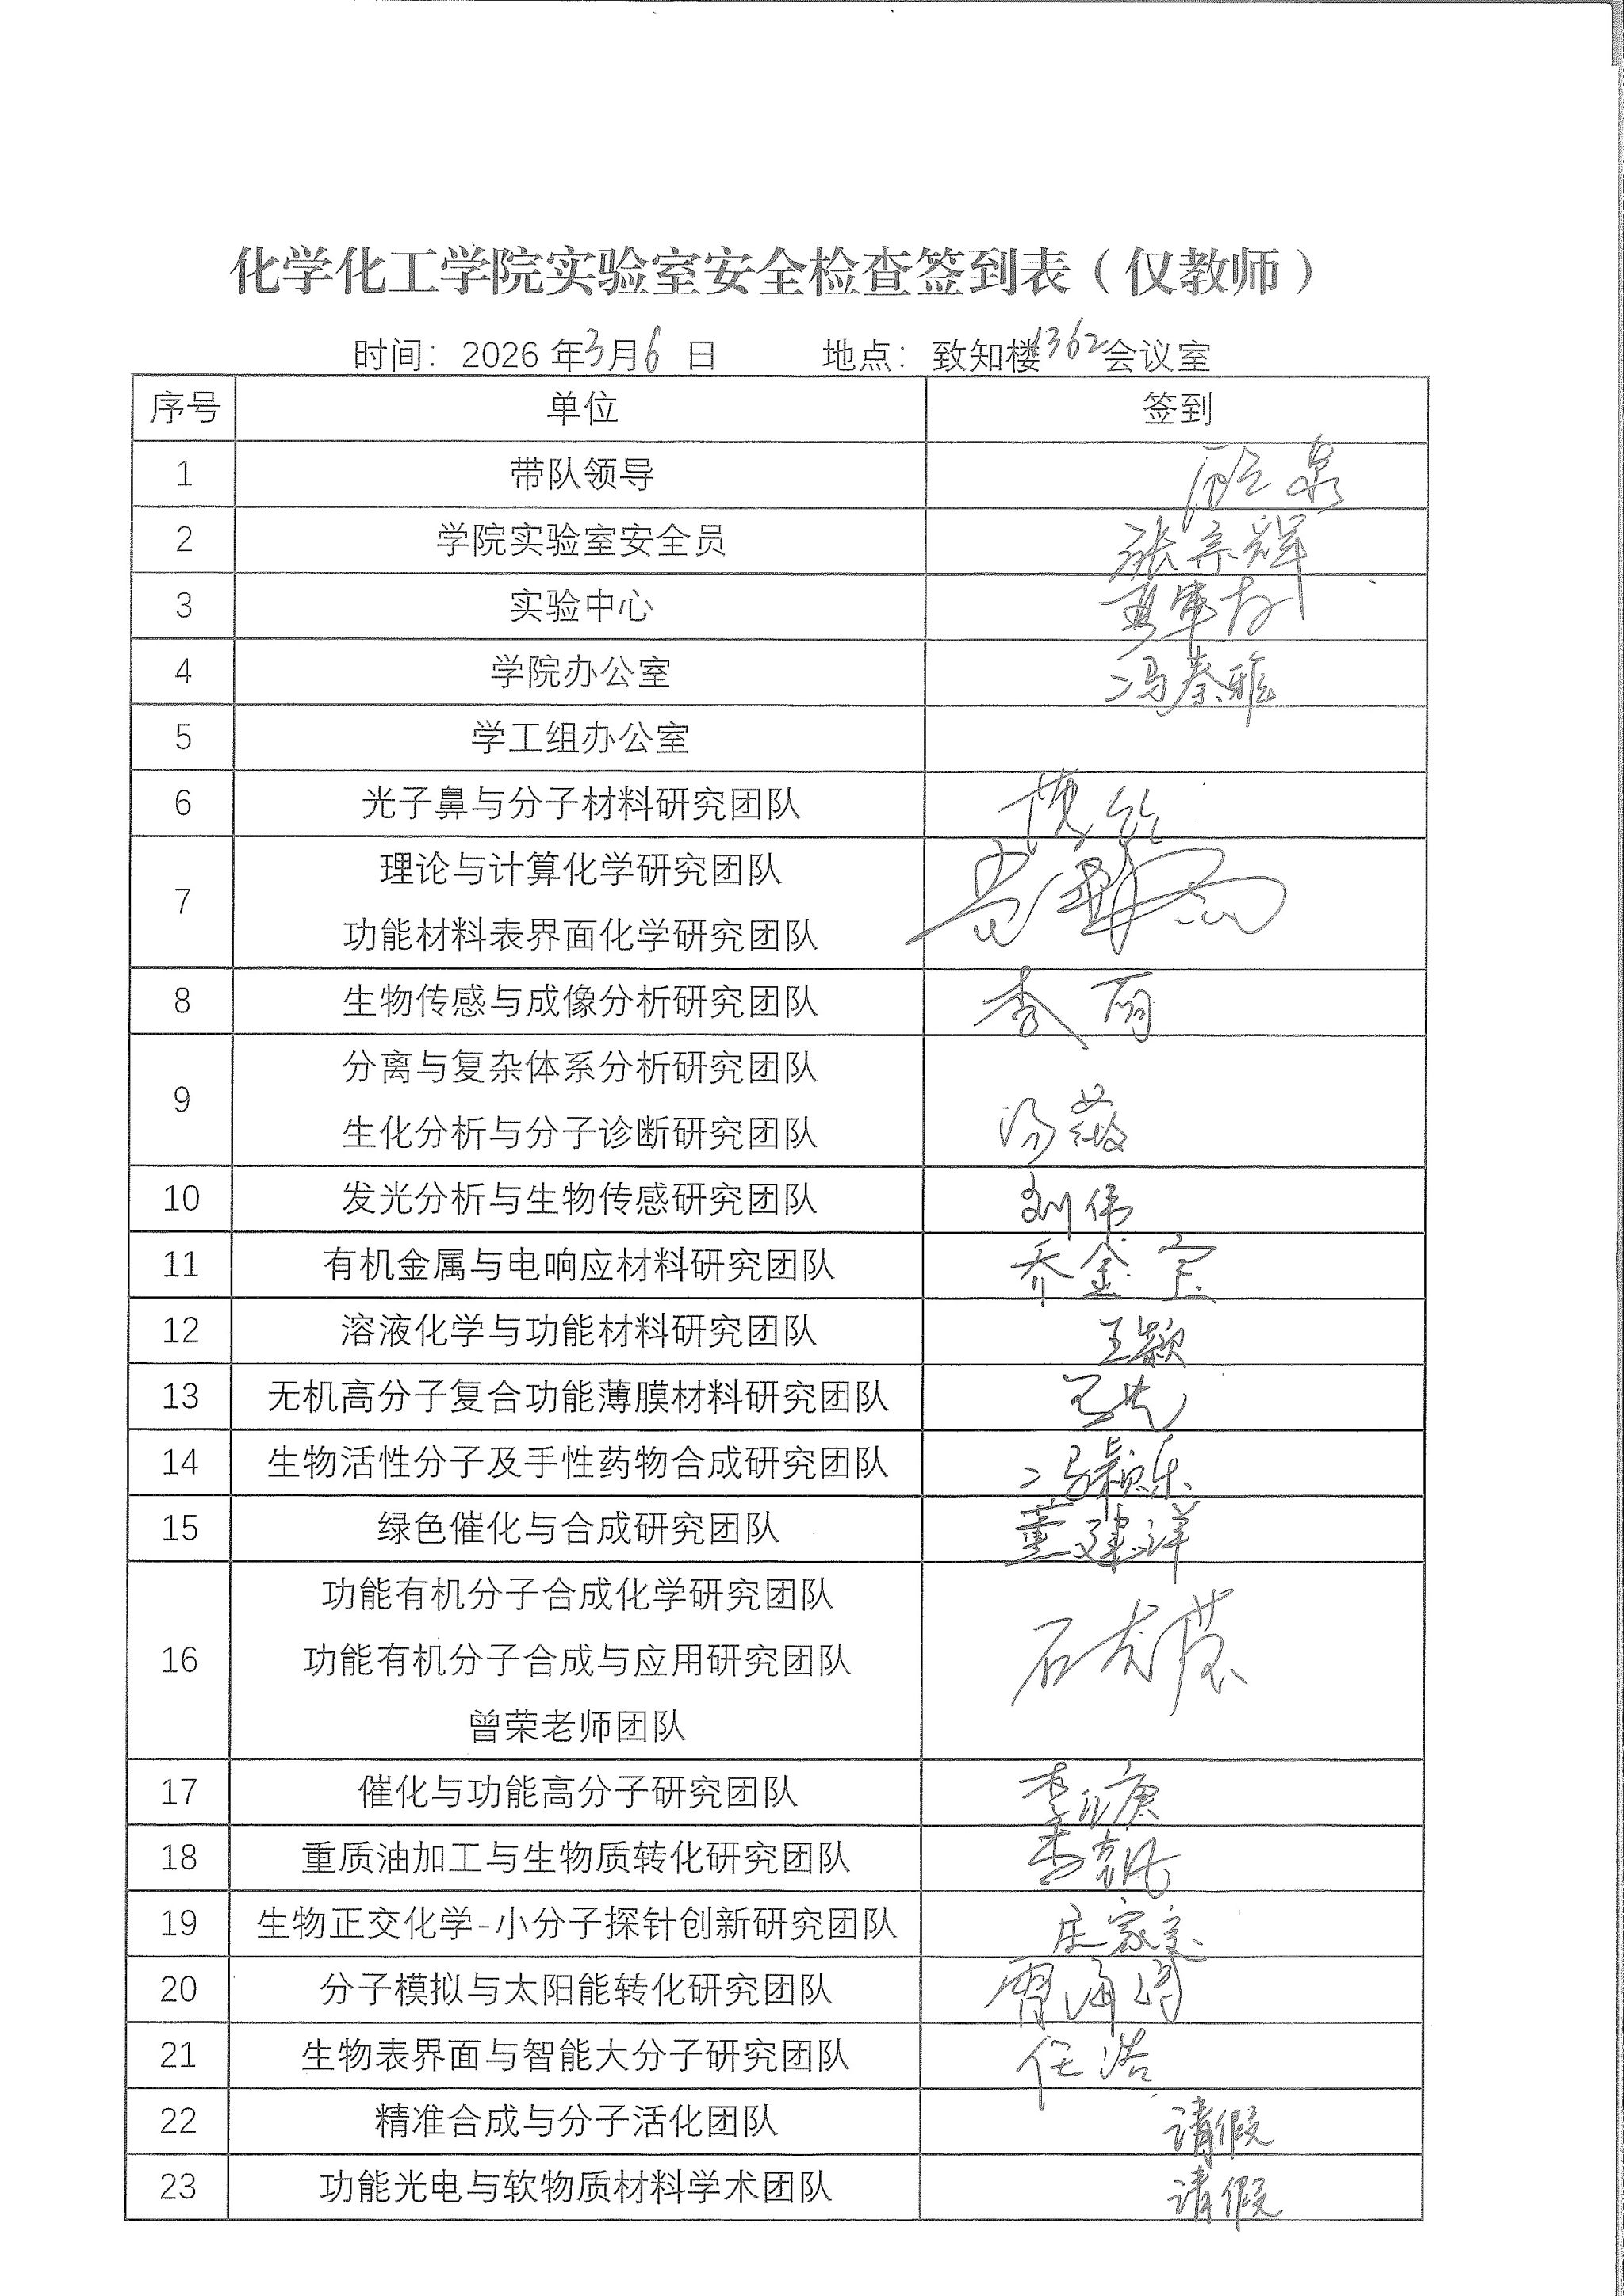 化学化工学院实验室安全检查签到表（仅教师）
时间：2026年3月6日 地点：致知楼1362会议室
序号 单位 签到
1 带队领导 泉
2 学院实验室安全员 张宗辉
3 实验中心
4 学院办公室 冯春雅
5 学工组办公室
6 光子鼻与分子材料研究团队
7 理论与计算化学研究团队
功能材料表界面化学研究团队
8 生物传感与成像分析研究团队 李丽
9 分离与复杂体系分析研究团队
生化分析与分子诊断研究团队 汤薇
10 发光分析与生物传感研究团队 刘伟
11 有机金属与电响应材料研究团队 乔金宝
12 溶液化学与功能材料研究团队 王颖
13 无机高分子复合功能薄膜材料研究团队
14 生物活性分子及手性药物合成研究团队 冯颖乐
15 绿色催化与合成研究团队 董建洋
16 功能有机分子合成化学研究团队
功能有机分子合成与应用研究团队
曾荣老师团队 石
17 催化与功能高分子研究团队 李
18 重质油加工与生物质转化研究团队
19 生物正交化学-小分子探针创新研究团队 家
20 分子模拟与太阳能转化研究团队 贾海
21 生物表界面与智能大分子研究团队 任浩
22 精准合成与分子活化团队 请假
23 功能光电与软物质材料学术团队 请假